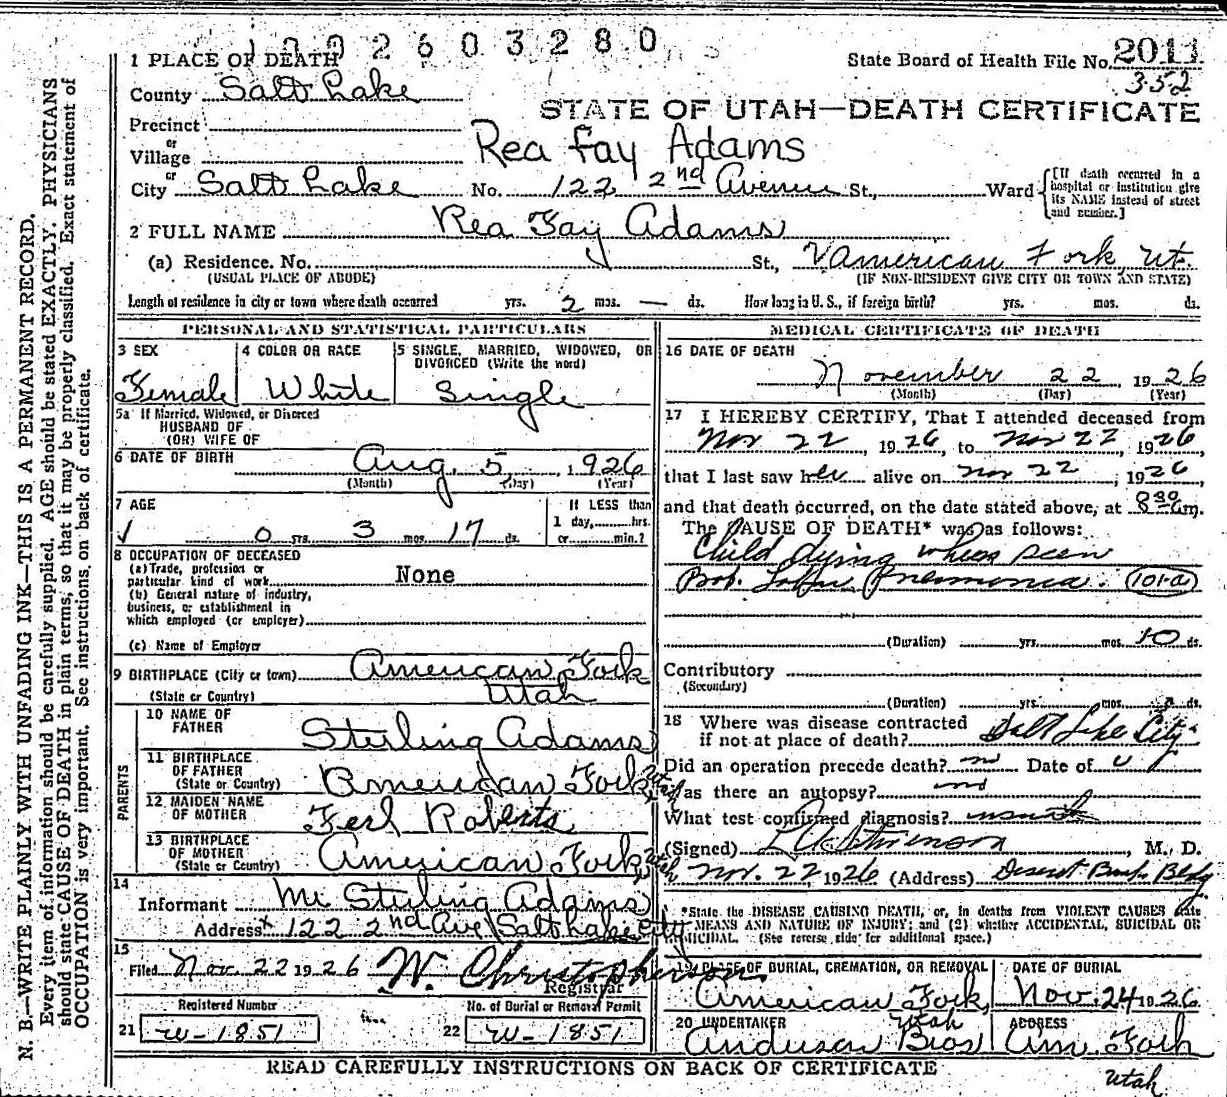 1002603280
1 PLACE OF DEATH
State Board of Health File No. 2011
352
County Salt Lake
STATE OF UTAH—DEATH CERTIFICATE
Precinct
or
Village
Rea Fay Adams
or
City Salt Lake No. 122 2nd Avenue St., Ward
[If death occurred in a hospital or institution give its NAME instead of street and number.]
2 FULL NAME Rea Fay Adams
(a) Residence. No. St., American Fork, Ut.
(USUAL PLACE OF ABODE) (IF NON-RESIDENT GIVE CITY OR TOWN AND STATE)
Length of residence in city or town where death occurred yrs. 2 mos. — ds. How long in U. S., if foreign birth? yrs. mos. ds.
PERSONAL AND STATISTICAL PARTICULARS
3 SEX
Female
4 COLOR OR RACE
White
5 SINGLE, MARRIED, WIDOWED, OR
DIVORCED (Write the word)
Single
5a If Married, Widowed, or Divorced
HUSBAND OF
(OR) WIFE OF
6 DATE OF BIRTH Aug. 5, 1926
(Month) (Day) (Year)
7 AGE
0 yrs. 3 mos. 17 ds.
If LESS than
1 day, hrs.
or min.?
8 OCCUPATION OF DECEASED
(a) Trade, profession or
particular kind of work None
(b) General nature of industry,
business, or establishment in
which employed (or employer)
(c) Name of Employer
9 BIRTHPLACE (City or town) American Fork
(State or Country) Utah
PARENTS
10 NAME OF
FATHER Sterling Adams
11 BIRTHPLACE
OF FATHER
(State or Country) American Fork Utah
12 MAIDEN NAME
OF MOTHER Ferl Roberts
13 BIRTHPLACE
OF MOTHER
(State or Country) American Fork Utah
14
Informant Mr Sterling Adams
Address 122 2nd Ave Salt Lake City
15
Filed Nov 22 1926 W. Christopherson
Registrar
Registered Number
21 W-1851
No. of Burial or Removal Permit
22 W-1851
MEDICAL CERTIFICATE OF DEATH
16 DATE OF DEATH
November 22 1926
(Month) (Day) (Year)
17 I HEREBY CERTIFY, That I attended deceased from
Nov 22, 1926, to Nov 22, 1926
that I last saw her alive on Nov 22, 1926
and that death occurred, on the date stated above, at 830 am.
The CAUSE OF DEATH* was as follows:
Child dying when seen
Pneumonia. 101-a
(Duration) yrs. mos. 10 ds.
Contributory
(Secondary)
(Duration) yrs. mos. ds.
18 Where was disease contracted
if not at place of death? Salt Lake City
Did an operation precede death? Date of
Was there an autopsy? no
What test confirmed diagnosis?
(Signed) , M. D.
Nov. 22, 1926 (Address) Deseret Bank Bldg
*State the DISEASE CAUSING DEATH, or, in deaths from VIOLENT CAUSES state
MEANS AND NATURE OF INJURY; and (2) whether ACCIDENTAL, SUICIDAL OR
HOMICIDAL. (See reverse side for additional space.)
19 PLACE OF BURIAL, CREMATION, OR REMOVAL
American Fork, Utah
DATE OF BURIAL
Nov. 24 1926
20 UNDERTAKER
Anderson Bros
ADDRESS
Am. Fork
Utah
READ CAREFULLY INSTRUCTIONS ON BACK OF CERTIFICATE
N. B.—WRITE PLAINLY WITH UNFADING INK—THIS IS A PERMANENT RECORD.
Every item of information should be carefully supplied. AGE should be stated EXACTLY. PHYSICIANS
should state CAUSE OF DEATH in plain terms, so that it may be properly classified. Exact statement of
OCCUPATION is very important. See instructions on back of certificate.